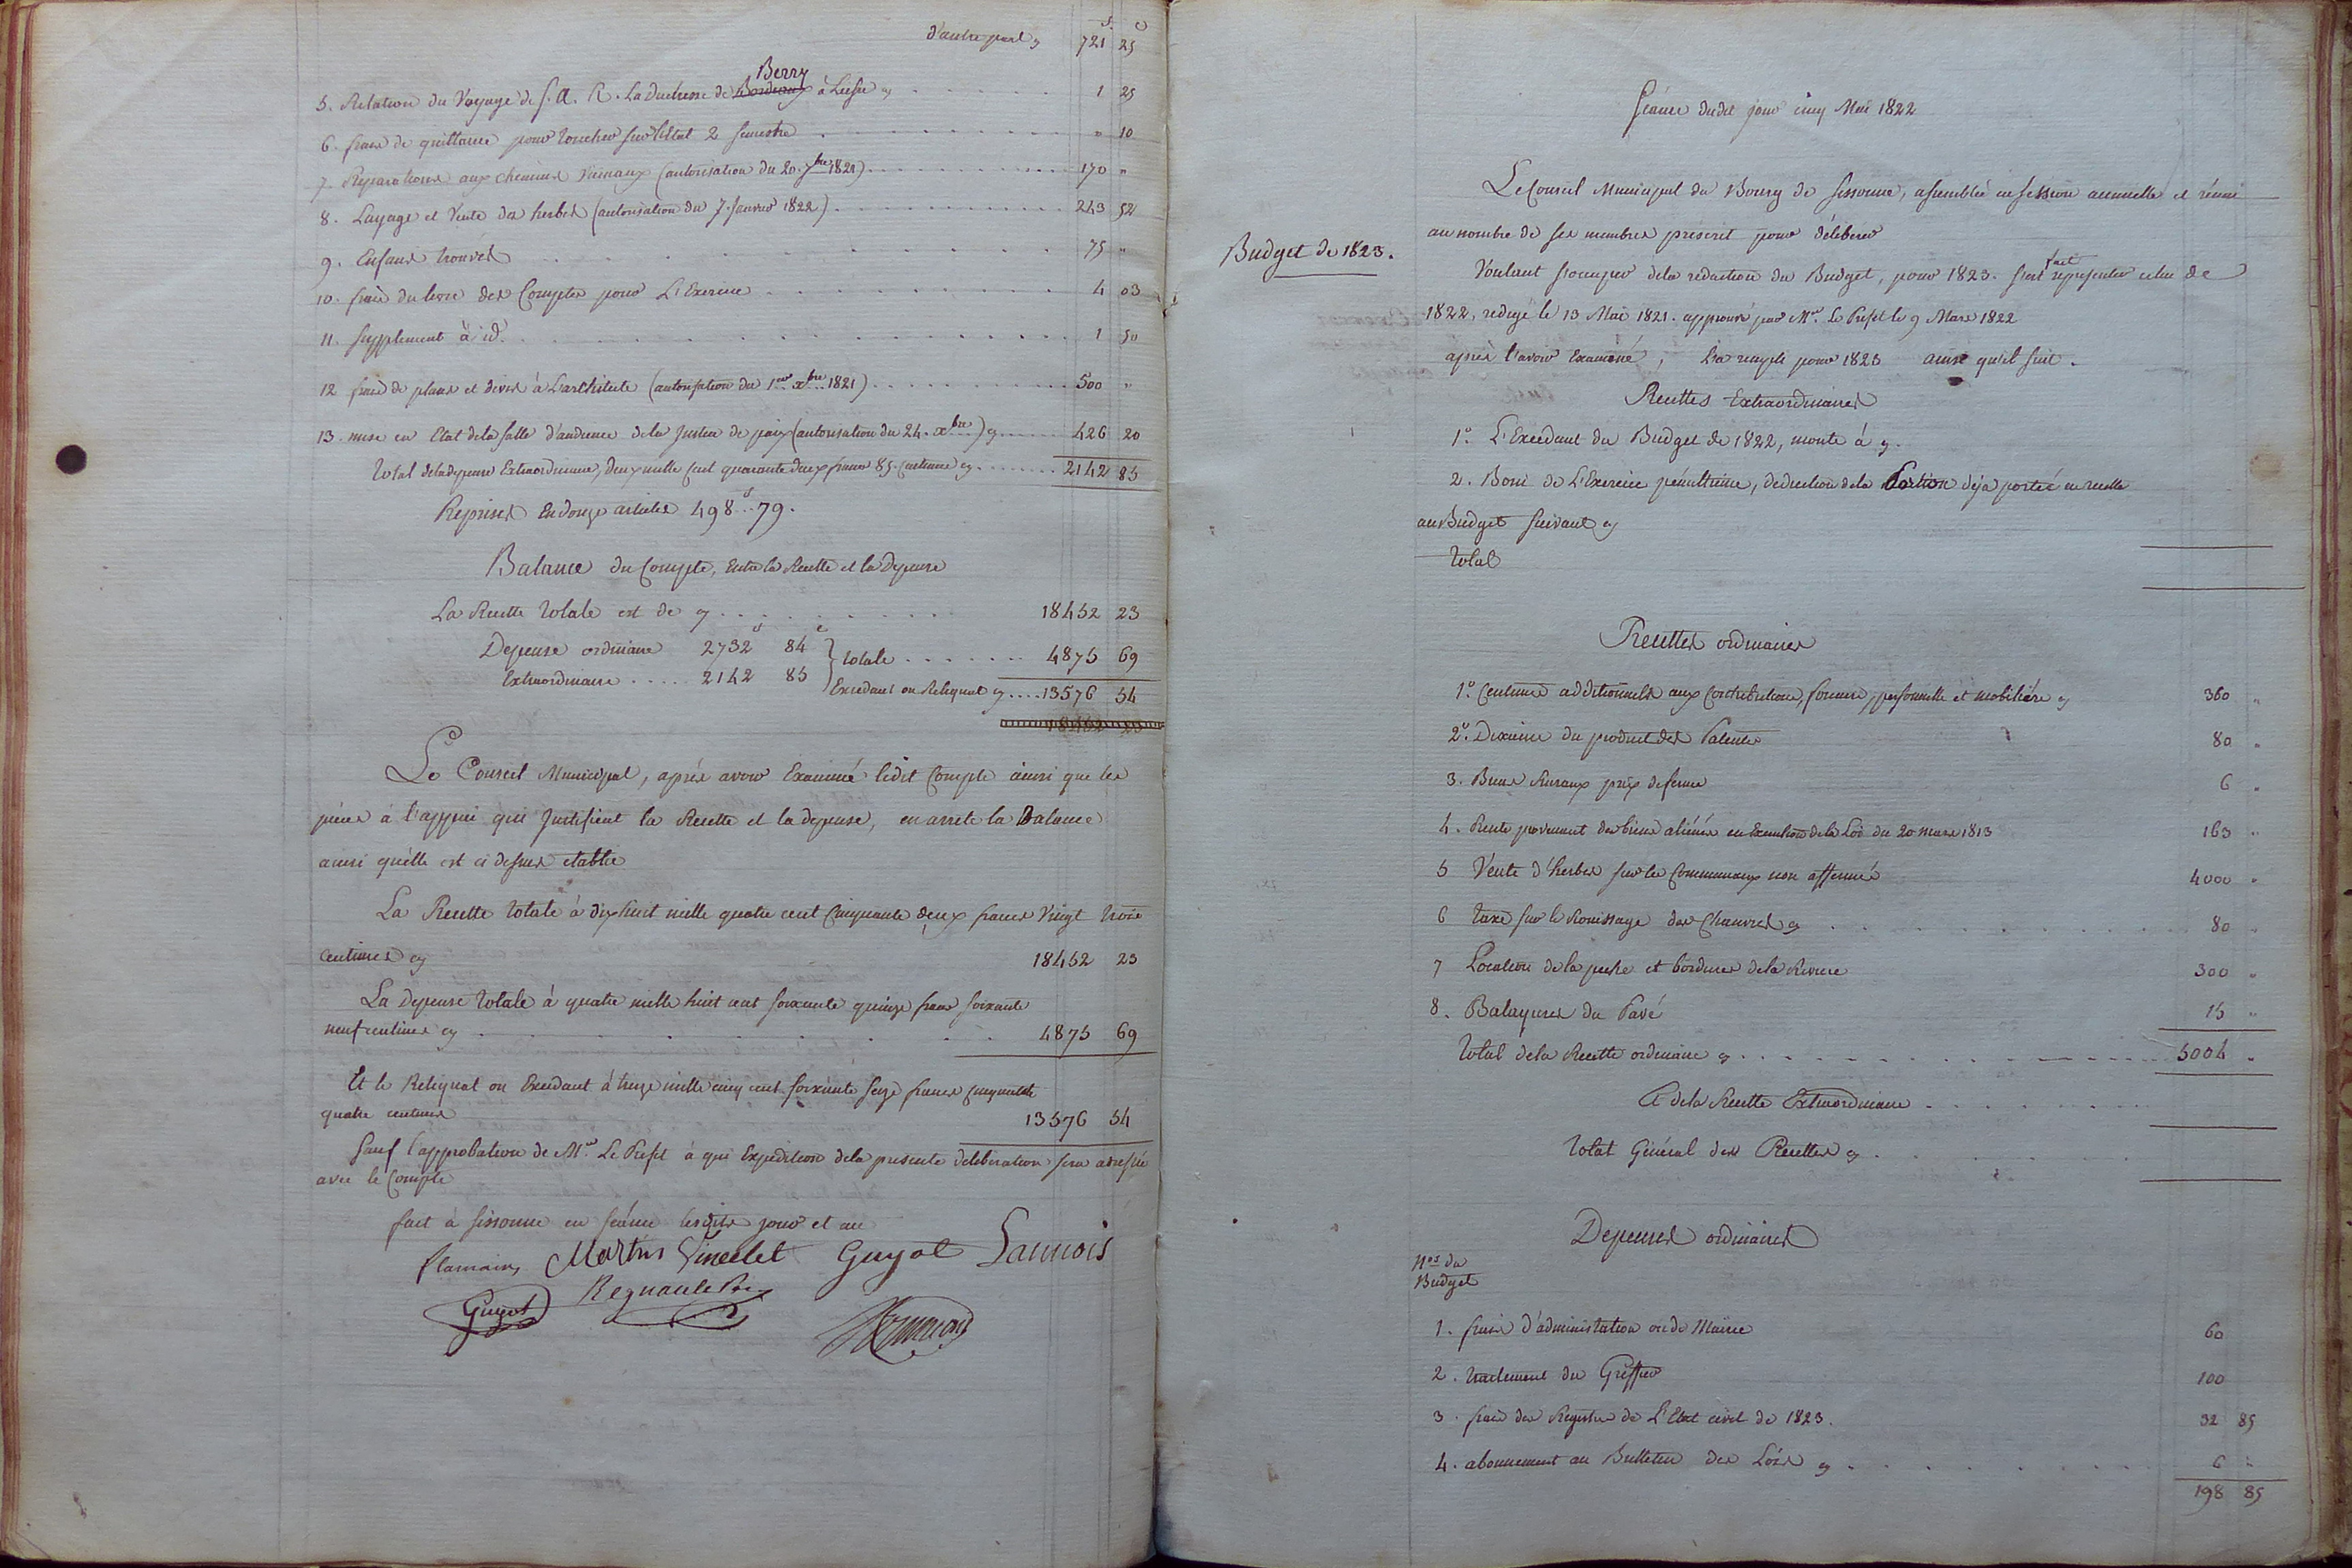 f c
d'autre part 721 25
Berry
5. Relation du Voyage de S. A. R. La Duchesse de Bordeaux à Liesse 1 25
6. frais de quittance pour toucher sur l'Etat 2 semestre " 10
7. Reparations aux chemins vicinaux (autorisation du 20. 7bre 1821) 170 "
8. Layage et Vente des herbes (autorisation du 7. Janvier 1822.) 243 52
9. Enfans trouvés 75 "
10. frais du livre des Comptes pour L'Exercice 4 03
11. Supplement à id. 1 50
12 frais de plans et devis à L'architecte (autorisation du 1er xbre 1821) 500 "
13. mise en Etat de la Salle d'audience de la Justice de paix (autorisation du 24. xbre) 426 20
Total de la depense Extraordinaire, deux mille cent quarante deux francs 85 Centimes 2142 85
Reprises En douze articles 498f..79.
Balance du Compte, Entre la Recette et la Depense
La Recette totale est de 18452 23
Depense ordinaire 2732f 84c
totale 4875 69
Extraordinaire 2142 85
Excedant ou Reliquat 13576 54
Le Conseil Municipal, après avoir Examiné ledit Compte ainsi que les
pièces à l'appui qui Justifient la Recette et la depense, en arrete la Balance
ainsi qu'elle est ci dessus etablie
La Recette totale à dix huit mille quatre cent Cinquante deux francs Vingt trois
centimes 18452 23
La depense totale à quatre mille huit cent soixante quinze francs soixante
neuf centimes 4875 69
Et le Reliquat ou Excedant à treize mille cinq cent soixante Seize francs cinquante
quatre centimes 13576 54
Sauf l'approbation de Mr. Le Prefet à qui Expedition de la presente deliberation sera adressée
avec le Compte
fait à Sissonne en séance lesdits jour et an
flamain Martin Guyot Launois
Guyot Regnault
Séance dudit jour cinq Mai 1822
Le Conseil Municipal du Bourg de Sissonne, assemblée en session annuelle et réuni
au nombre de ses membres prescrit pour délibérer
Budget de 1823.
Voulant s'occuper de la redaction du Budget, pour 1823. s'est fait representer celui de
1822, redigé le 13 Mai 1821. approuvé par Mr. Le Prefet le 9 Mars 1822
après l'avoir Examiné, L'a remplie pour 1823 ainsi qu'il suit.
Recettes Extraordinaires
1°. L'Excedant du Budget de 1822, monte à
2. Boni de L'Exercice pénultième, deduction de la Portion déja portée en recette
au Budget suivant
Total
Recettes ordinaires
1°. Centimes additionnels aux Contributions, fonciere, personnelle et mobilière 360 "
2°. Dixieme du produit des Patentes 80 "
3. Biens Ruraux prix de ferme 6 "
4. Rente provenant des biens aliénés en Execution de la Loi du 20 mars 1813 163 "
5 Vente d'herbes sur les Communaux non affermés 4000 "
6 taxe sur le Rouissage des Chanvres 80 "
7 Location de la peche et bordures de la Riviere 300 "
8. Balayures du Pavé 15 "
Total de la Recette ordinaire 5004 "
de la Recette Extraordinaire
Total Général des Recettes
Depenses ordinaires
Nos du
Budget
1. frais d'administration ou de Mairie 60
2. traitement du Greffier 100
3. frais des Registres de L'Etat civil de 1823. 32 85
4. abonnement au Bulletin des Lois 6 "
198 85